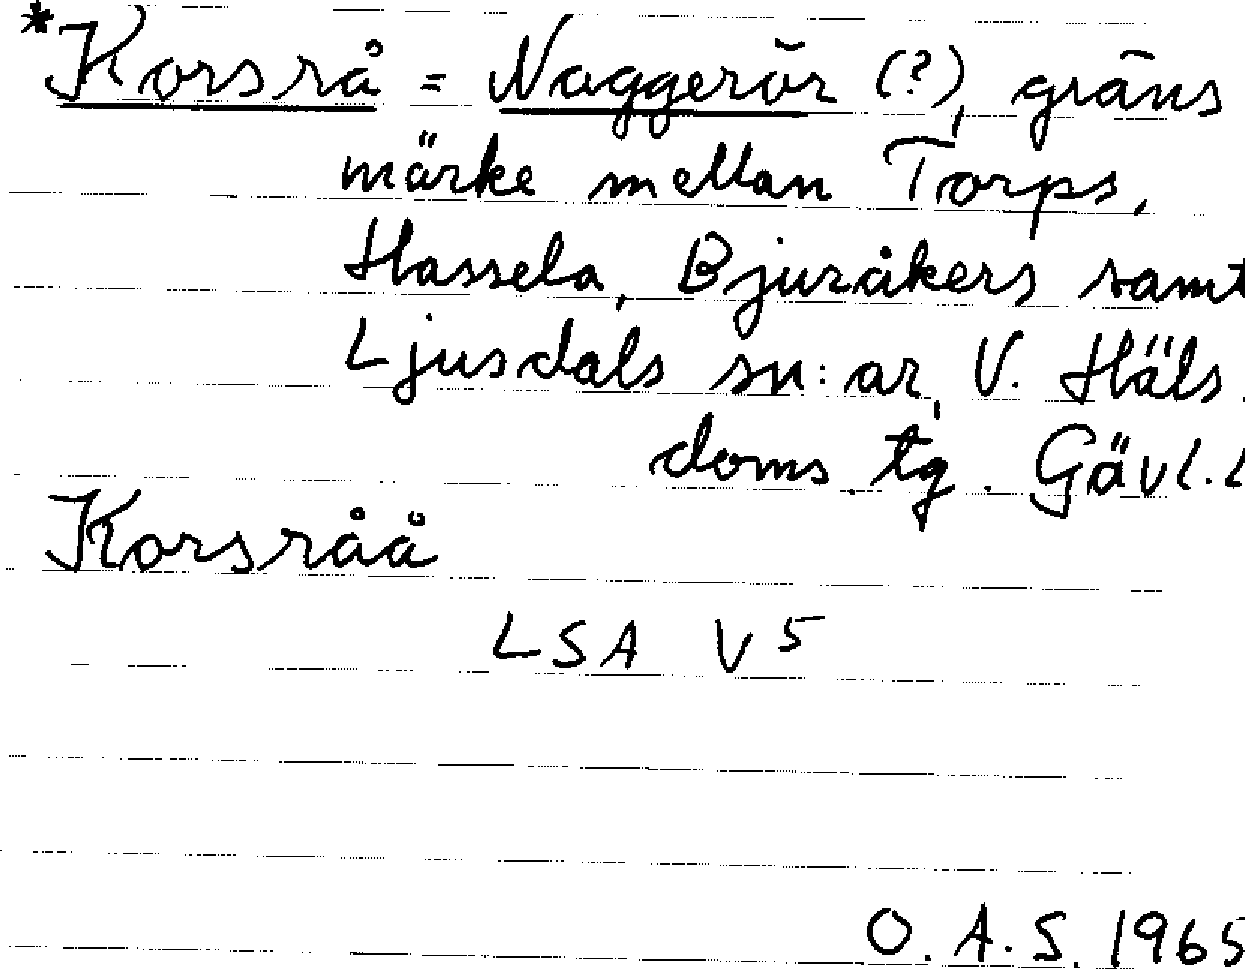 *Korsrå = Naggerör (?), gräns
märke mellan Torps,
Hassela, Bjuråkers samt
Ljusdals sn:ar, V. Häls.
doms.tg. Gävl.L
Korsråå
LSA V5
O.A.S. 1965